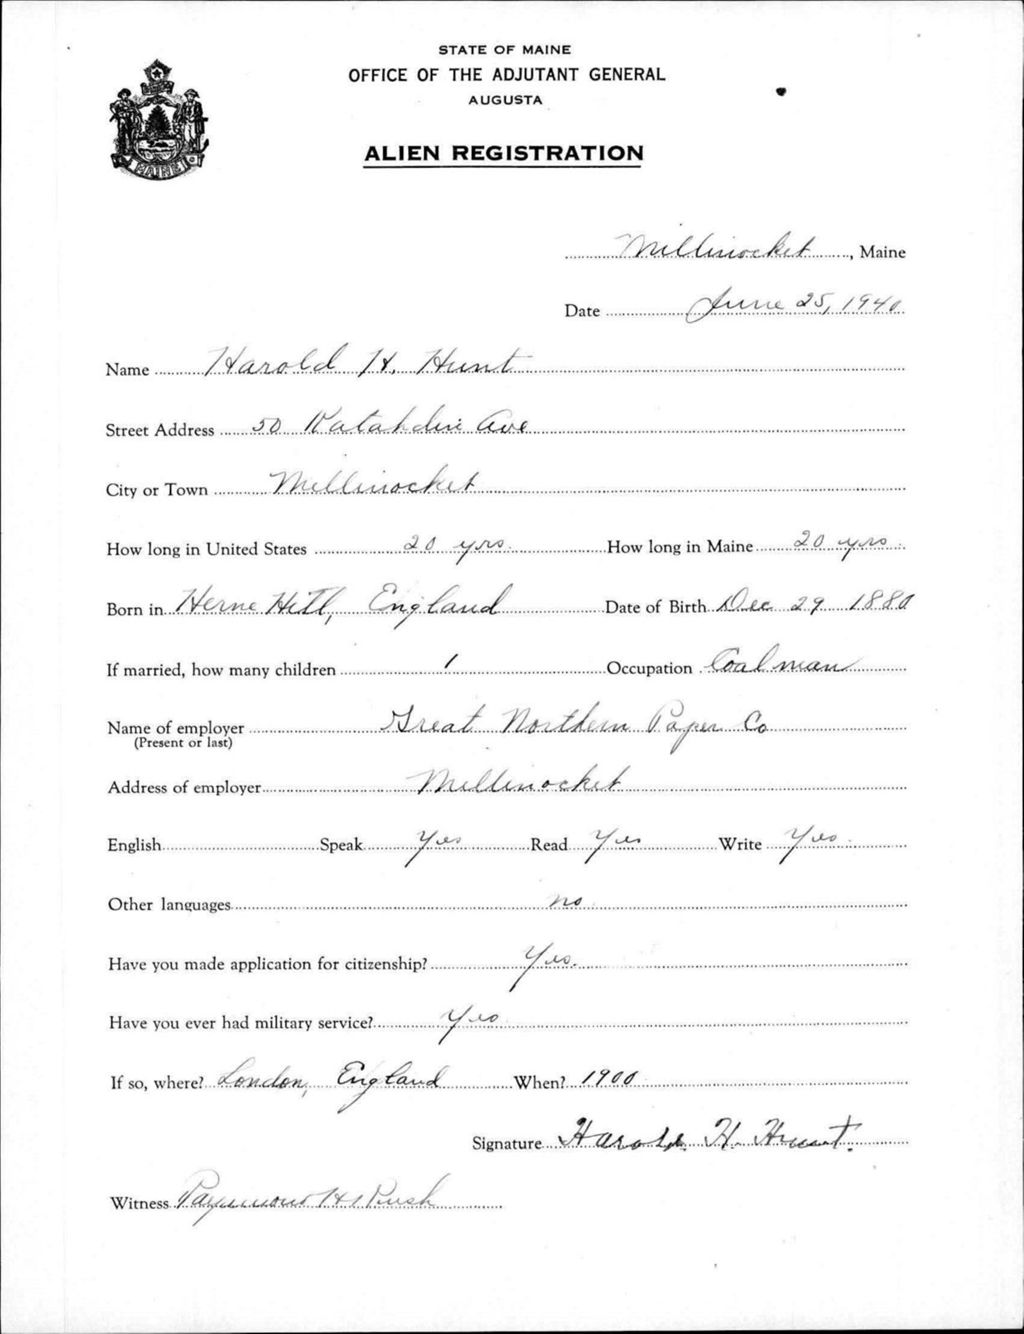 STATE OF MAINE
OFFICE OF THE ADJUTANT GENERAL
AUGUSTA
ALIEN REGISTRATION
MAINE
Millinocket, Maine
Date June 25, 1940
Name Harold H. Hunt
Street Address 50 Katahdin Ave
City or Town Millinocket
How long in United States 20 yrs. How long in Maine 20 yrs.
Born in Herne Hill, England Date of Birth Dec 29 1880
If married, how many children 1 Occupation Coalman
Name of employer Great Northern Paper Co
(Present or last)
Address of employer Millinocket
English Speak Yes Read Yes Write Yes
Other languages no
Have you made application for citizenship? Yes.
Have you ever had military service? Yes
If so, where? London, England When? 1900
Signature Harold H. Hunt.
Witness Raymond H Rush